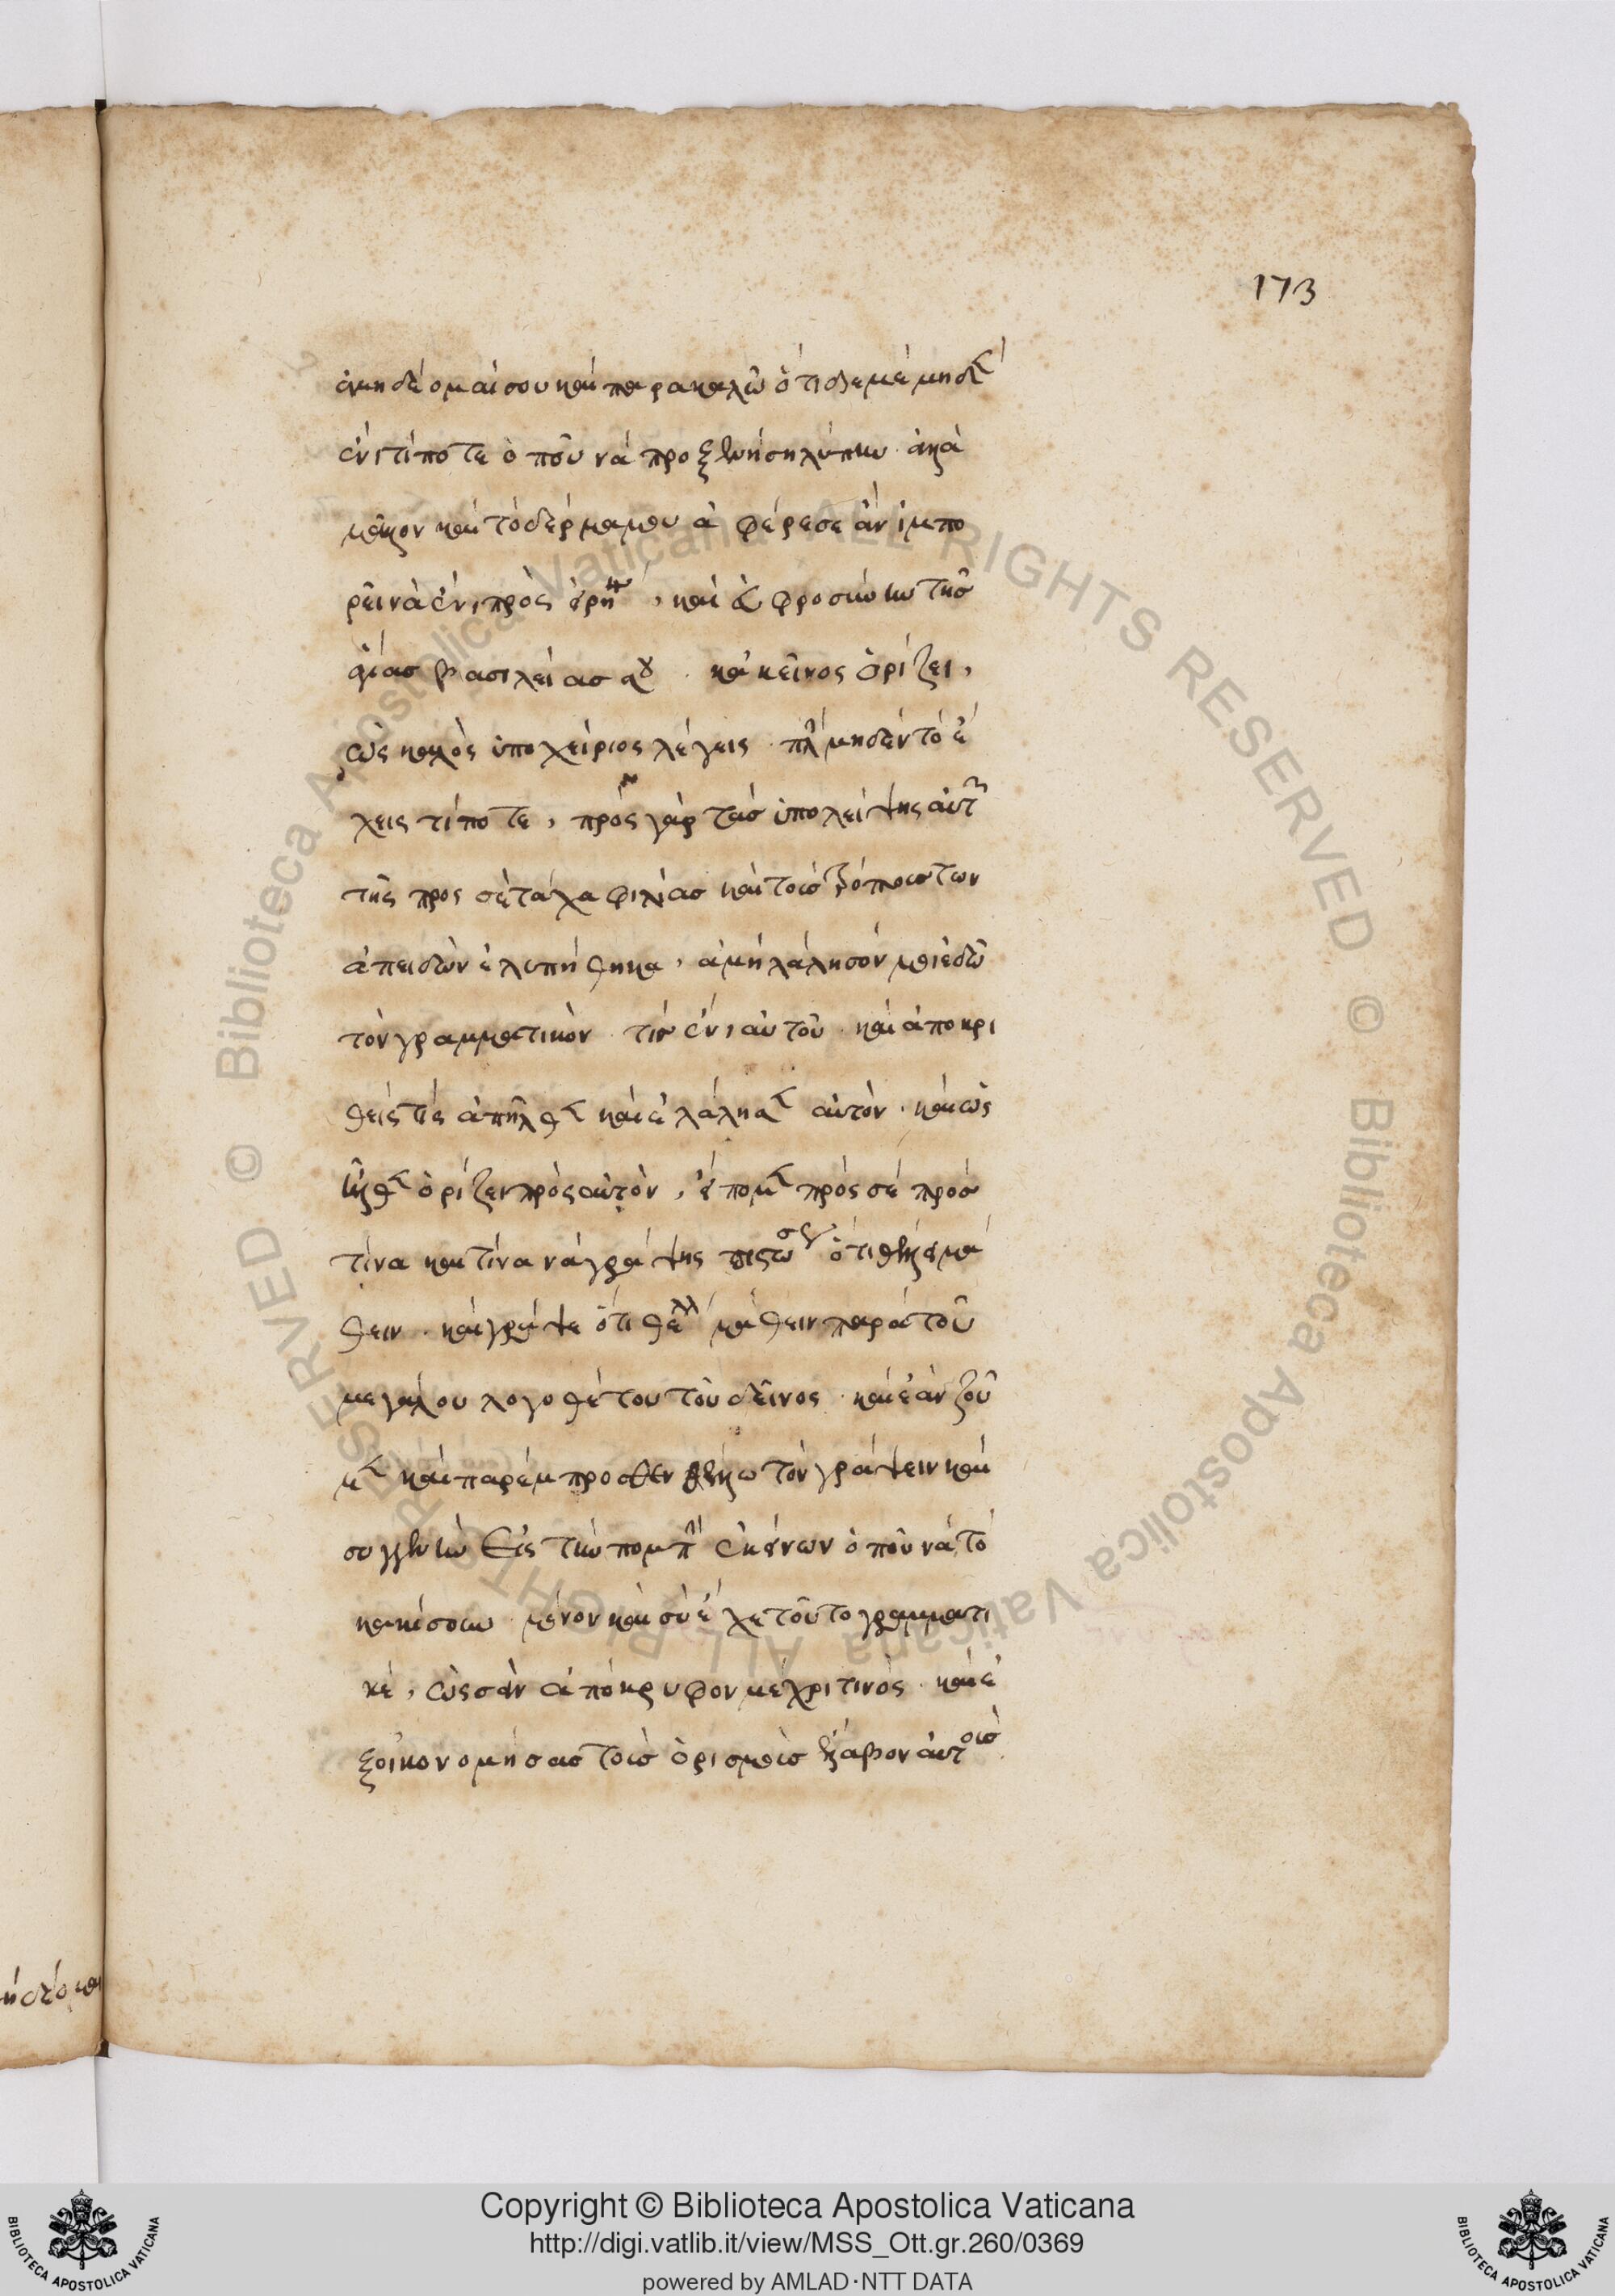 173
ἀμὴ δέομαί σου καὶ παρακαλῶ ὅτι δι' ἐμὲ μηδὲν
ἔνι τίποτε ὁποῦ νὰ προξενήση λύπην ἀλλὰ
μᾶλλον καὶ τὸ δέρμα μου ἀφέρεσε ἂν ἠμπο
ρεῖ νὰ ἔνι πρὸς καὶ εὐφροσύνην τῆς
ἁγίας βασιλείας σου κἀκεῖνος ὁρίζει,
ὡς καλὸς ὑποχείριος λέγεις πλὴν μηδὲν τὸ ἔ
χεις τίποτε, πρὸς γὰρ τὰς ὑπολείψης αὐτὰς
τῆς προς σὲ τάχα φιλίας καὶ τοὺς τρόπους των
ἀπειδὼν ἐλυπήθηκα, ἀμὴ λάλησόν μοι ἐδῶ
τὸν γραμματικὸν τίς ἔνι αὐτοῦ καὶ ἀποκρι
θείς τις ἀπῆλθεν καὶ ἐλάλησεν αὐτόν καὶ ὡς
ἦλθεν ὁρίζει πρὸς αὐτὸν, εἴπομεν πρὸς σὲ πρὸς
τίνα και τίνα νὰ γράψης πιστῶς ὅτι θέλει μά
θειν καὶ γράψε ὅτι θέλει μάθειν παρὰ τοῦ
μεγάλου λογοθέτου τοῦ δεῖνος καὶ ἐὰν ζοῦ
μεν καὶ παρέμπροσθεν θέλω τὸν γράψειν καὶ
συγγενῆ Εἰς τὴν πομπὴν ἐκείνων ὁποῦ νὰ τὸ
κακίσουν μόνον καὶ σὺ ἔχε τοῦτο γραμματι
κέ, ὡσσὰν ἀπόκρυφον μέχρι τινός καὶ ἐ
ξοικονομήσας τοῖς ὁρισμοῖς ἔλαβον αὐτοῖς
Copyright © Biblioteca Apostolica Vaticana
http://digi.vatlib.it/view/MSS_Ott.gr.260/0369
powered by AMLAD·NTT DATA